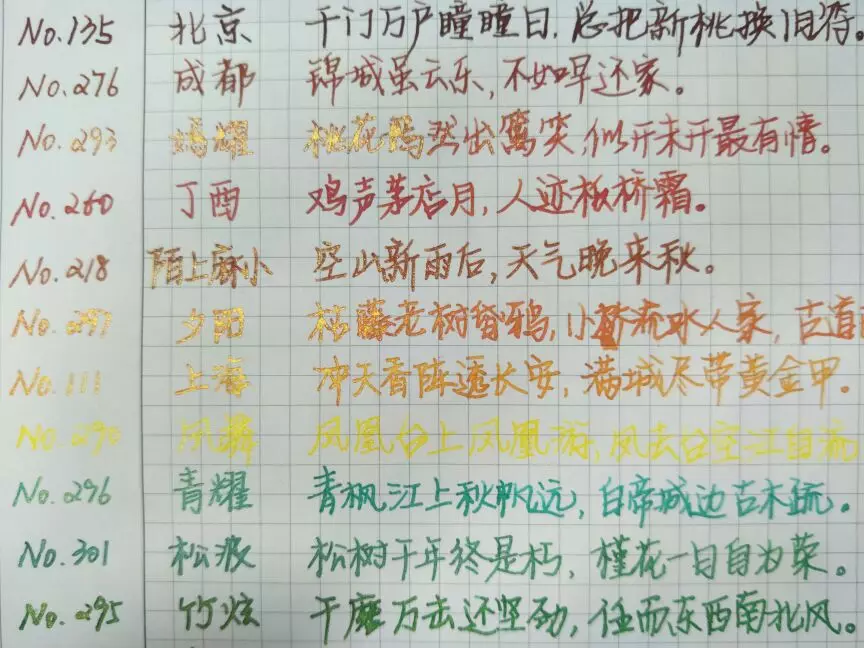 No.135 北京 千门万户瞳瞳日,总把新桃换旧符。
No.276 成都 锦城虽云乐,不如早还家。
No.293 嫣耀 桃花嫣然出篱笑,似开未开最有情。
No.260 丁酉 鸡声茅店月,人迹板桥霜。
No.218 陌上麻小 空山新雨后,天气晚来秋。
No.297 夕阳 枯藤老树昏鸦,小桥流水人家,古道
No.111 上海 冲天香阵透长安,满城尽带黄金甲。
No.290 凤舞 凤凰台上凤凰游,凤去台空江自流
No.296 青耀 青枫江上秋帆远,白帝城边古木疏。
No.301 松波 松树千年终是朽,槿花一日自为荣。
No.295 竹炫 千磨万击还坚劲,任而东西南北风。